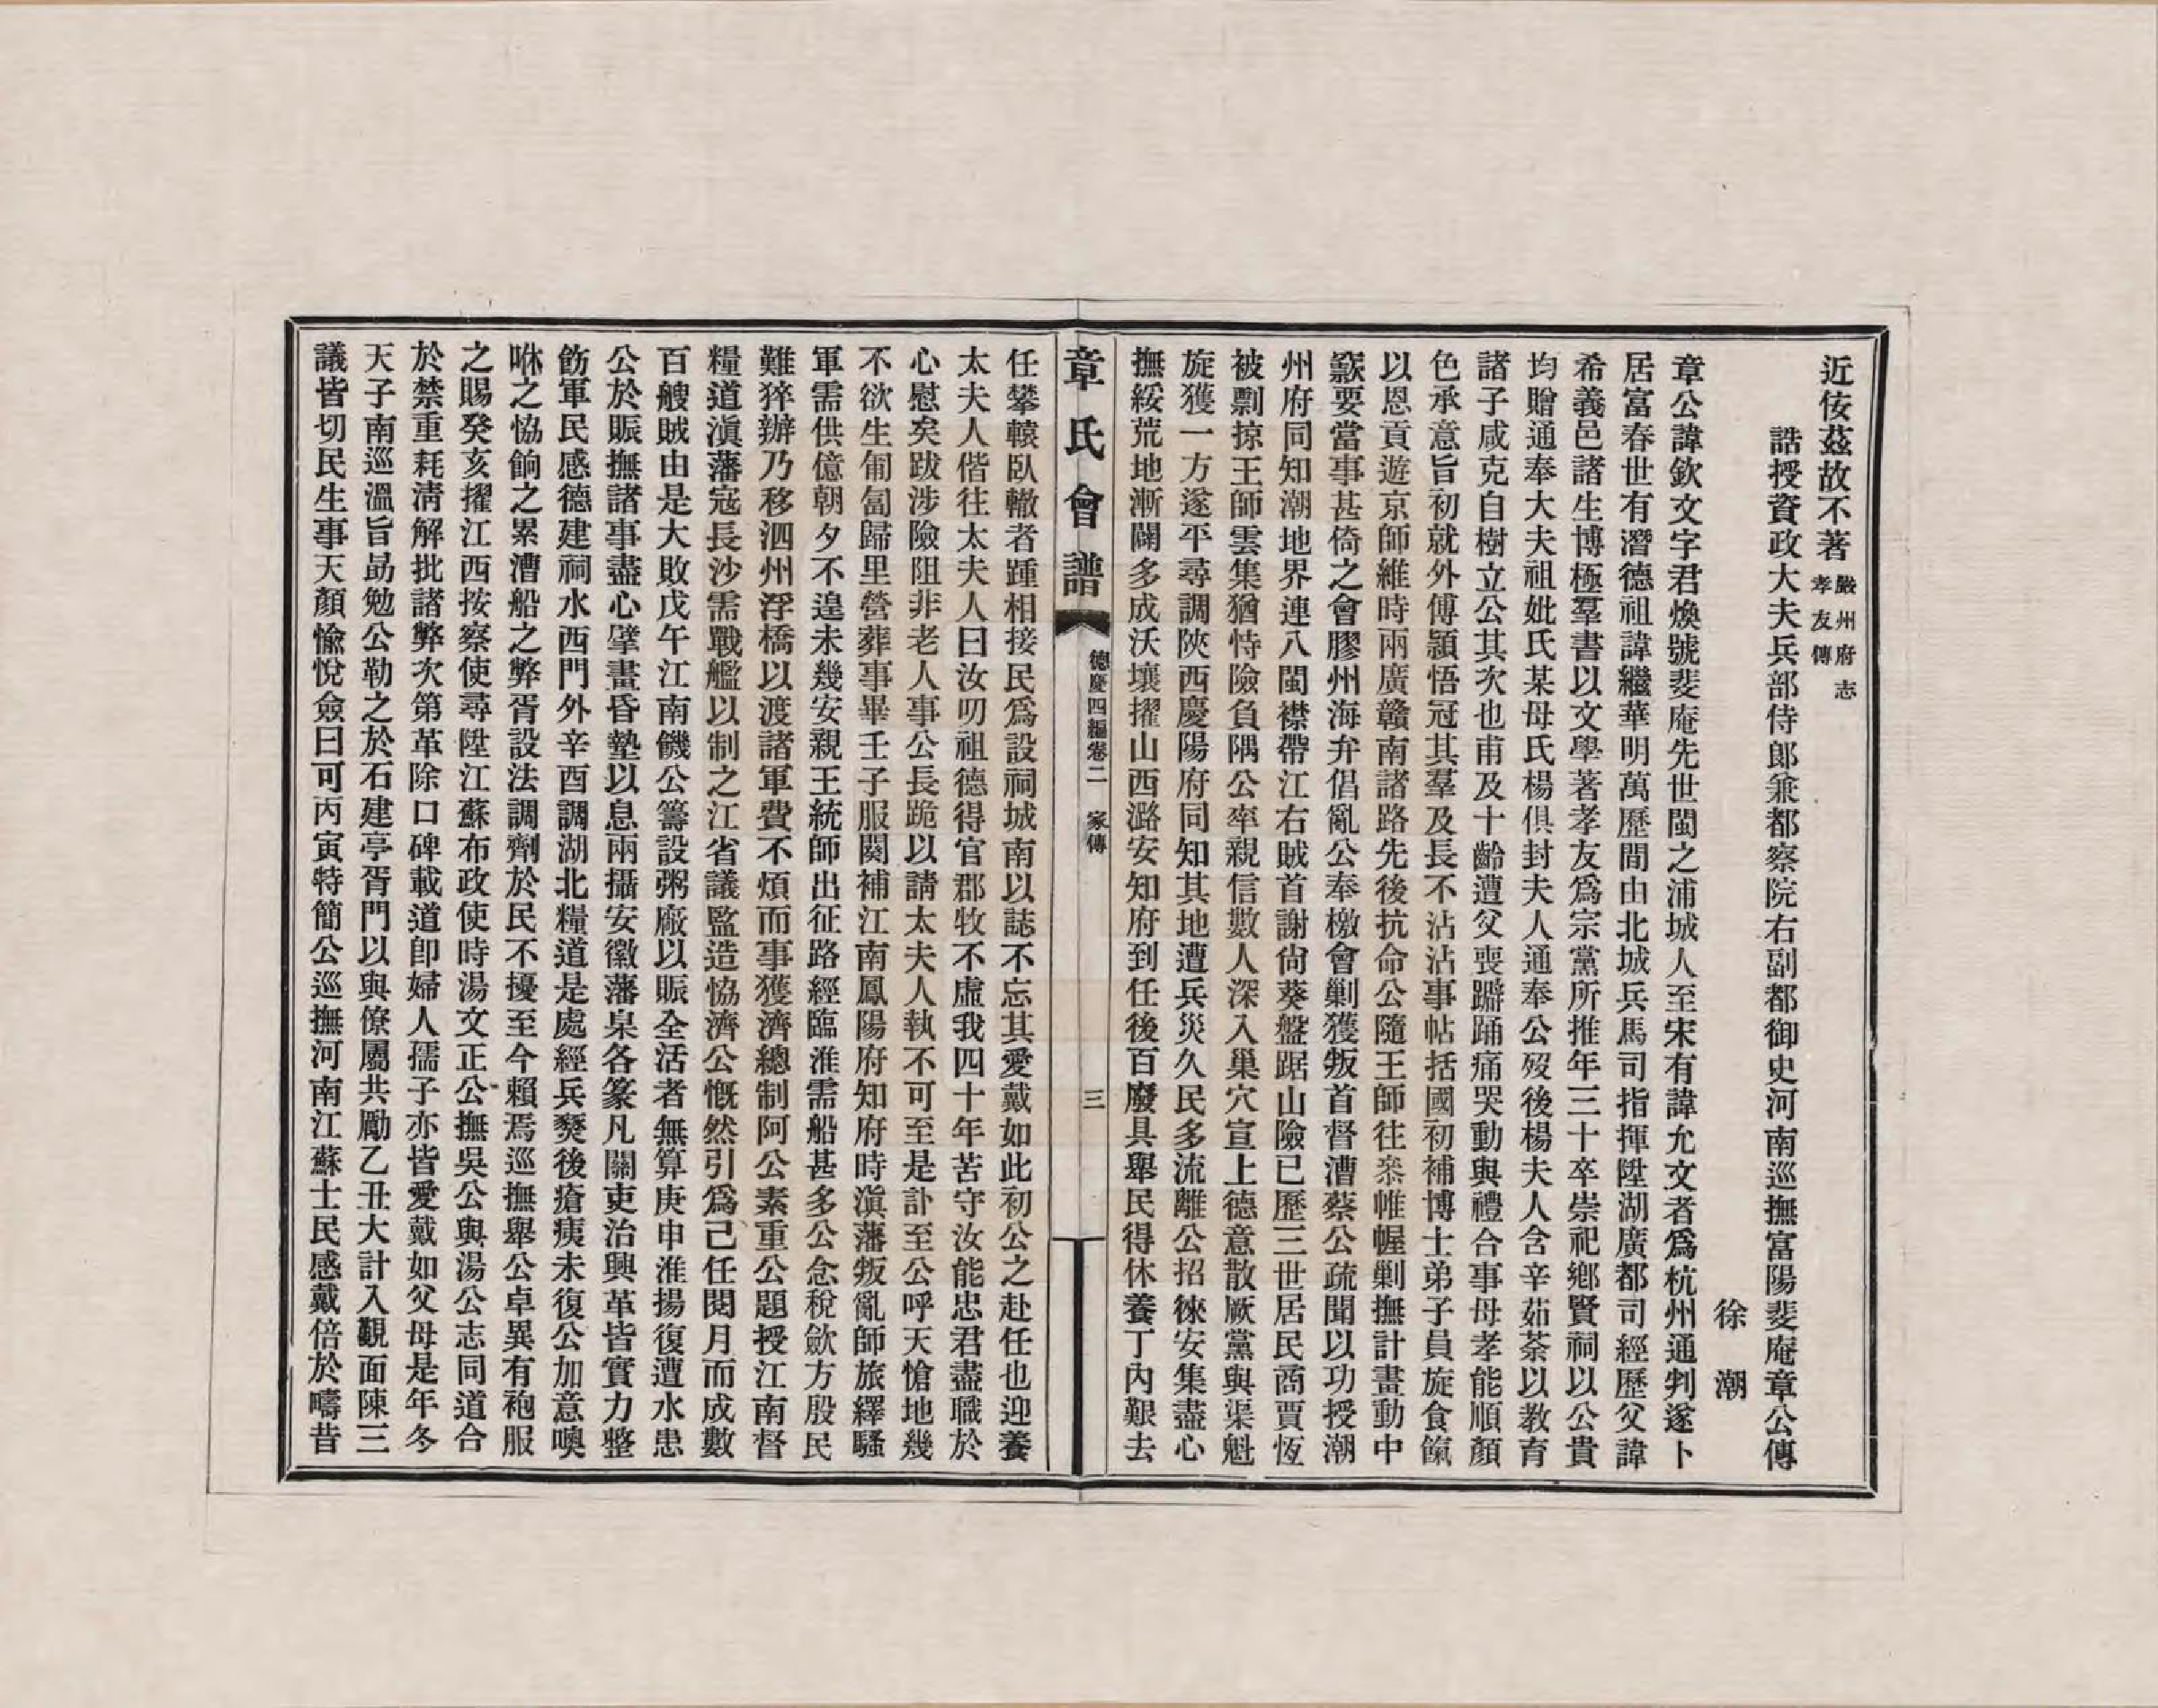 近侒茲故不著嚴州府志孝友傳
誥授資政大夫兵部侍郎兼都察院右副都御史河南巡撫富陽斐庵章公傳
徐潮
章公諱欽文字君煥號斐庵先世閩之浦城人至宋有諱允文者爲杭州通判遂卜
居富春世有潛德祖諱繼華明萬歷間由北城兵馬司指揮陞湖廣都司經歷父諱
希義邑諸生博極羣書以文學著孝友爲宗黨所推年三十卒崇祀鄉賢祠以公貴
均贈通奉大夫祖妣氏某母氏楊俱封夫人通奉公歿後楊夫人含辛茹荼以教育
諸子咸克自樹立公其次也甫及十齡遭父喪躃踊痛哭動與禮合事母孝能順顏
色承意旨初就外傅穎悟冠其羣及長不沾沾事帖括國初補博士弟子員旋食餼
以恩貢遊京師維時兩廣贛南諸路先後抗命公隨王師往叅帷幄剿撫計畫動中
窾要當事甚倚之會膠州海弁倡亂公奉檄會剿獲叛首督漕蔡公疏聞以功授潮
州府同知潮地界連八閩襟帶江右賊首謝尙葵盤踞山險已歷三世居民商賈恆
被剽掠王師雲集猶恃險負隅公率親信數人深入巢穴宣上德意散厥黨與渠魁
旋獲一方遂平尋調陝西慶陽府同知其地遭兵災久民多流離公招徠安集盡心
撫綏荒地漸闢多成沃壤擢山西潞安知府到任後百廢具舉民得休養丁內艱去
章氏會譜 德慶四編卷二 家傳 三
任攀轅臥轍者踵相接民爲設祠城南以誌不忘其愛戴如此初公之赴任也迎養
太夫人偕往太夫人曰汝叨祖德得官郡牧不虛我四十年苦守汝能忠君盡職於
心慰矣跋涉險阻非老人事公長跪以請太夫人執不可至是訃至公呼天愴地幾
不欲生匍匐歸里營葬事畢壬子服闋補江南鳳陽府知府時滇藩叛亂師旅繹騷
軍需供億朝夕不遑未幾安親王統師出征路經臨淮需船甚多公念稅歛方殷民
難猝辦乃移泗州浮橋以渡諸軍費不煩而事獲濟總制阿公素重公題授江南督
糧道滇藩寇長沙需戰艦以制之江省議監造恊濟公慨然引爲己任閱月而成數
百艘賊由是大敗戊午江南饑公籌設粥廠以賑全活者無算庚申淮揚復遭水患
公於賑撫諸事盡心擘畫昏墊以息兩攝安徽藩臬各篆凡關吏治興革皆實力整
飭軍民感德建祠水西門外辛酉調湖北糧道是處經兵燹後瘡痍未復公加意噢
咻之恊餉之累漕船之弊胥設法調劑於民不擾至今賴焉巡撫舉公卓異有袍服
之賜癸亥擢江西按察使尋陞江蘇布政使時湯文正公撫吳公與湯公志同道合
於禁重耗淸解批諸弊次第革除口碑載道卽婦人孺子亦皆愛戴如父母是年冬
天子南巡溫旨勗勉公勒之於石建亭胥門以與僚屬共勵乙丑大計入覲面陳三
議皆切民生事天顏愉悅僉曰可丙寅特簡公巡撫河南江蘇士民感戴倍於疇昔